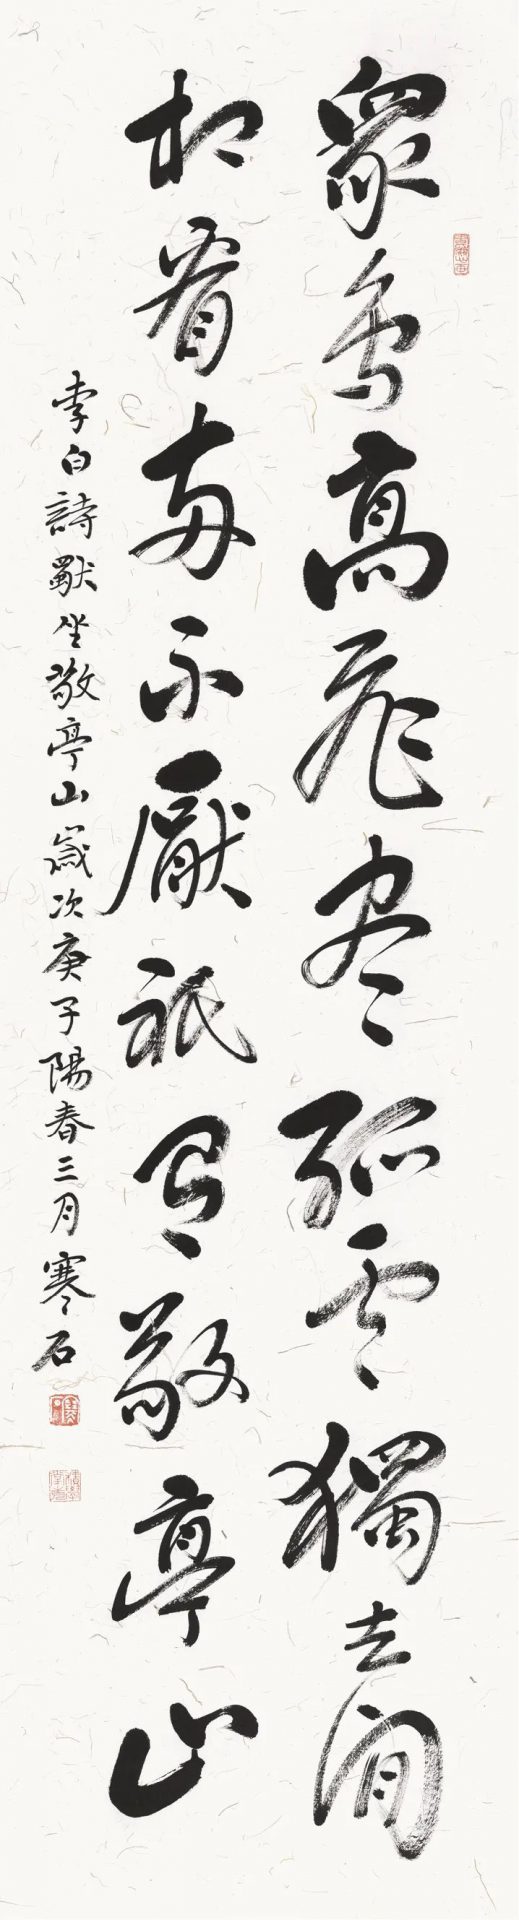 眾鳥高飛盡孤雲獨去閒
相看兩不厭祇有敬亭山
李白詩獨坐敬亭山歲次庚子陽春三月寒石